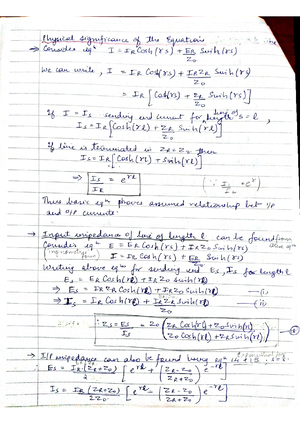 Physical significance of the Equations
→ Consider eqⁿ I = IR Cosh(rs) + ER/Z0 Sinh(rs)
We can write, I = IR Cosh(rs) + IR ZR/Z0 Sinh(rs)
= IR [Cosh(rs) + ZR/Z0 Sinh(rs)]
If I = Is sending end current for line of length s = l,
Is = IR [Cosh(rl) + ZR/Z0 Sinh(rl)]
If line is terminated in ZR = Z0 then
Is = IR [Cosh(rl) + Sinh(rl)]
⇒ Is/IR = e^rl
These basic eqⁿ proves assumed relationship bet I/P
and O/P currents.
→ Input impedance of Line of length l can be found from above eqⁿ
Consider eqⁿ E = ER Cosh(rs) + IR Z0 Sinh(rs)
I = IR Cosh(rs) + ER/Z0 Sinh(rs)
Writing above eqⁿ for sending end Es, Is for length l
Es = ER Cosh(rl) + IR Z0 Sinh(rl)
⇒ Es = IR ZR Cosh(rl) + IR Z0 Sinh(rl) — (i)
⇒ Is = IR Cosh(rl) + IR ZR/Z0 Sinh(rl) — (ii)
∴ Zs = Es/Is = Z0 (ZR Cosh(rl) + Z0 Sinh(rl) / Z0 Cosh(rl) + ZR Sinh(rl))
→ I/P impedance can also be found using eqⁿ
Es = IR (ZR+Z0)/2 [e^rl + (ZR-Z0/ZR+Z0) e^-rl]
Is = IR (ZR+Z0)/2Z0 [e^rl - (ZR-Z0/ZR+Z0) e^-rl]